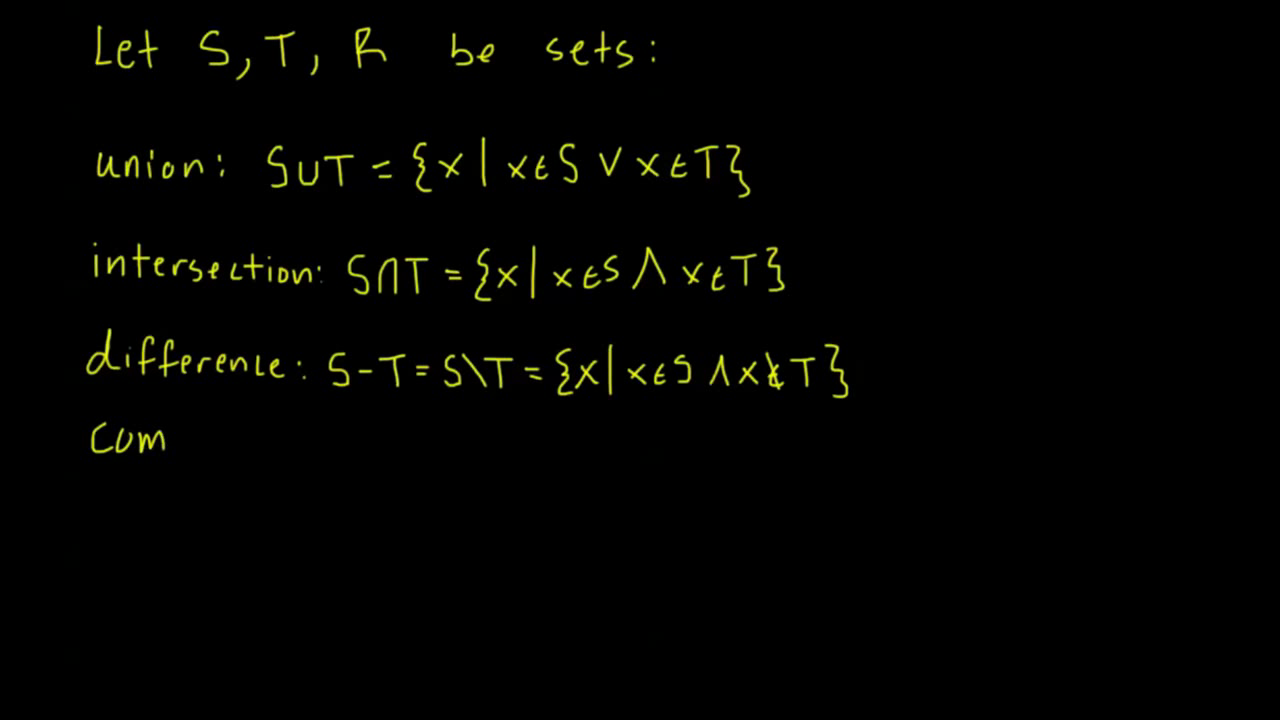 Let S, T, R be sets:
union: S∪T = {x | x∈S ∨ x∈T}
intersection: S∩T = {x | x∈S ∧ x∈T}
difference: S-T = S\T = {x | x∈S ∧ x∉T}
com